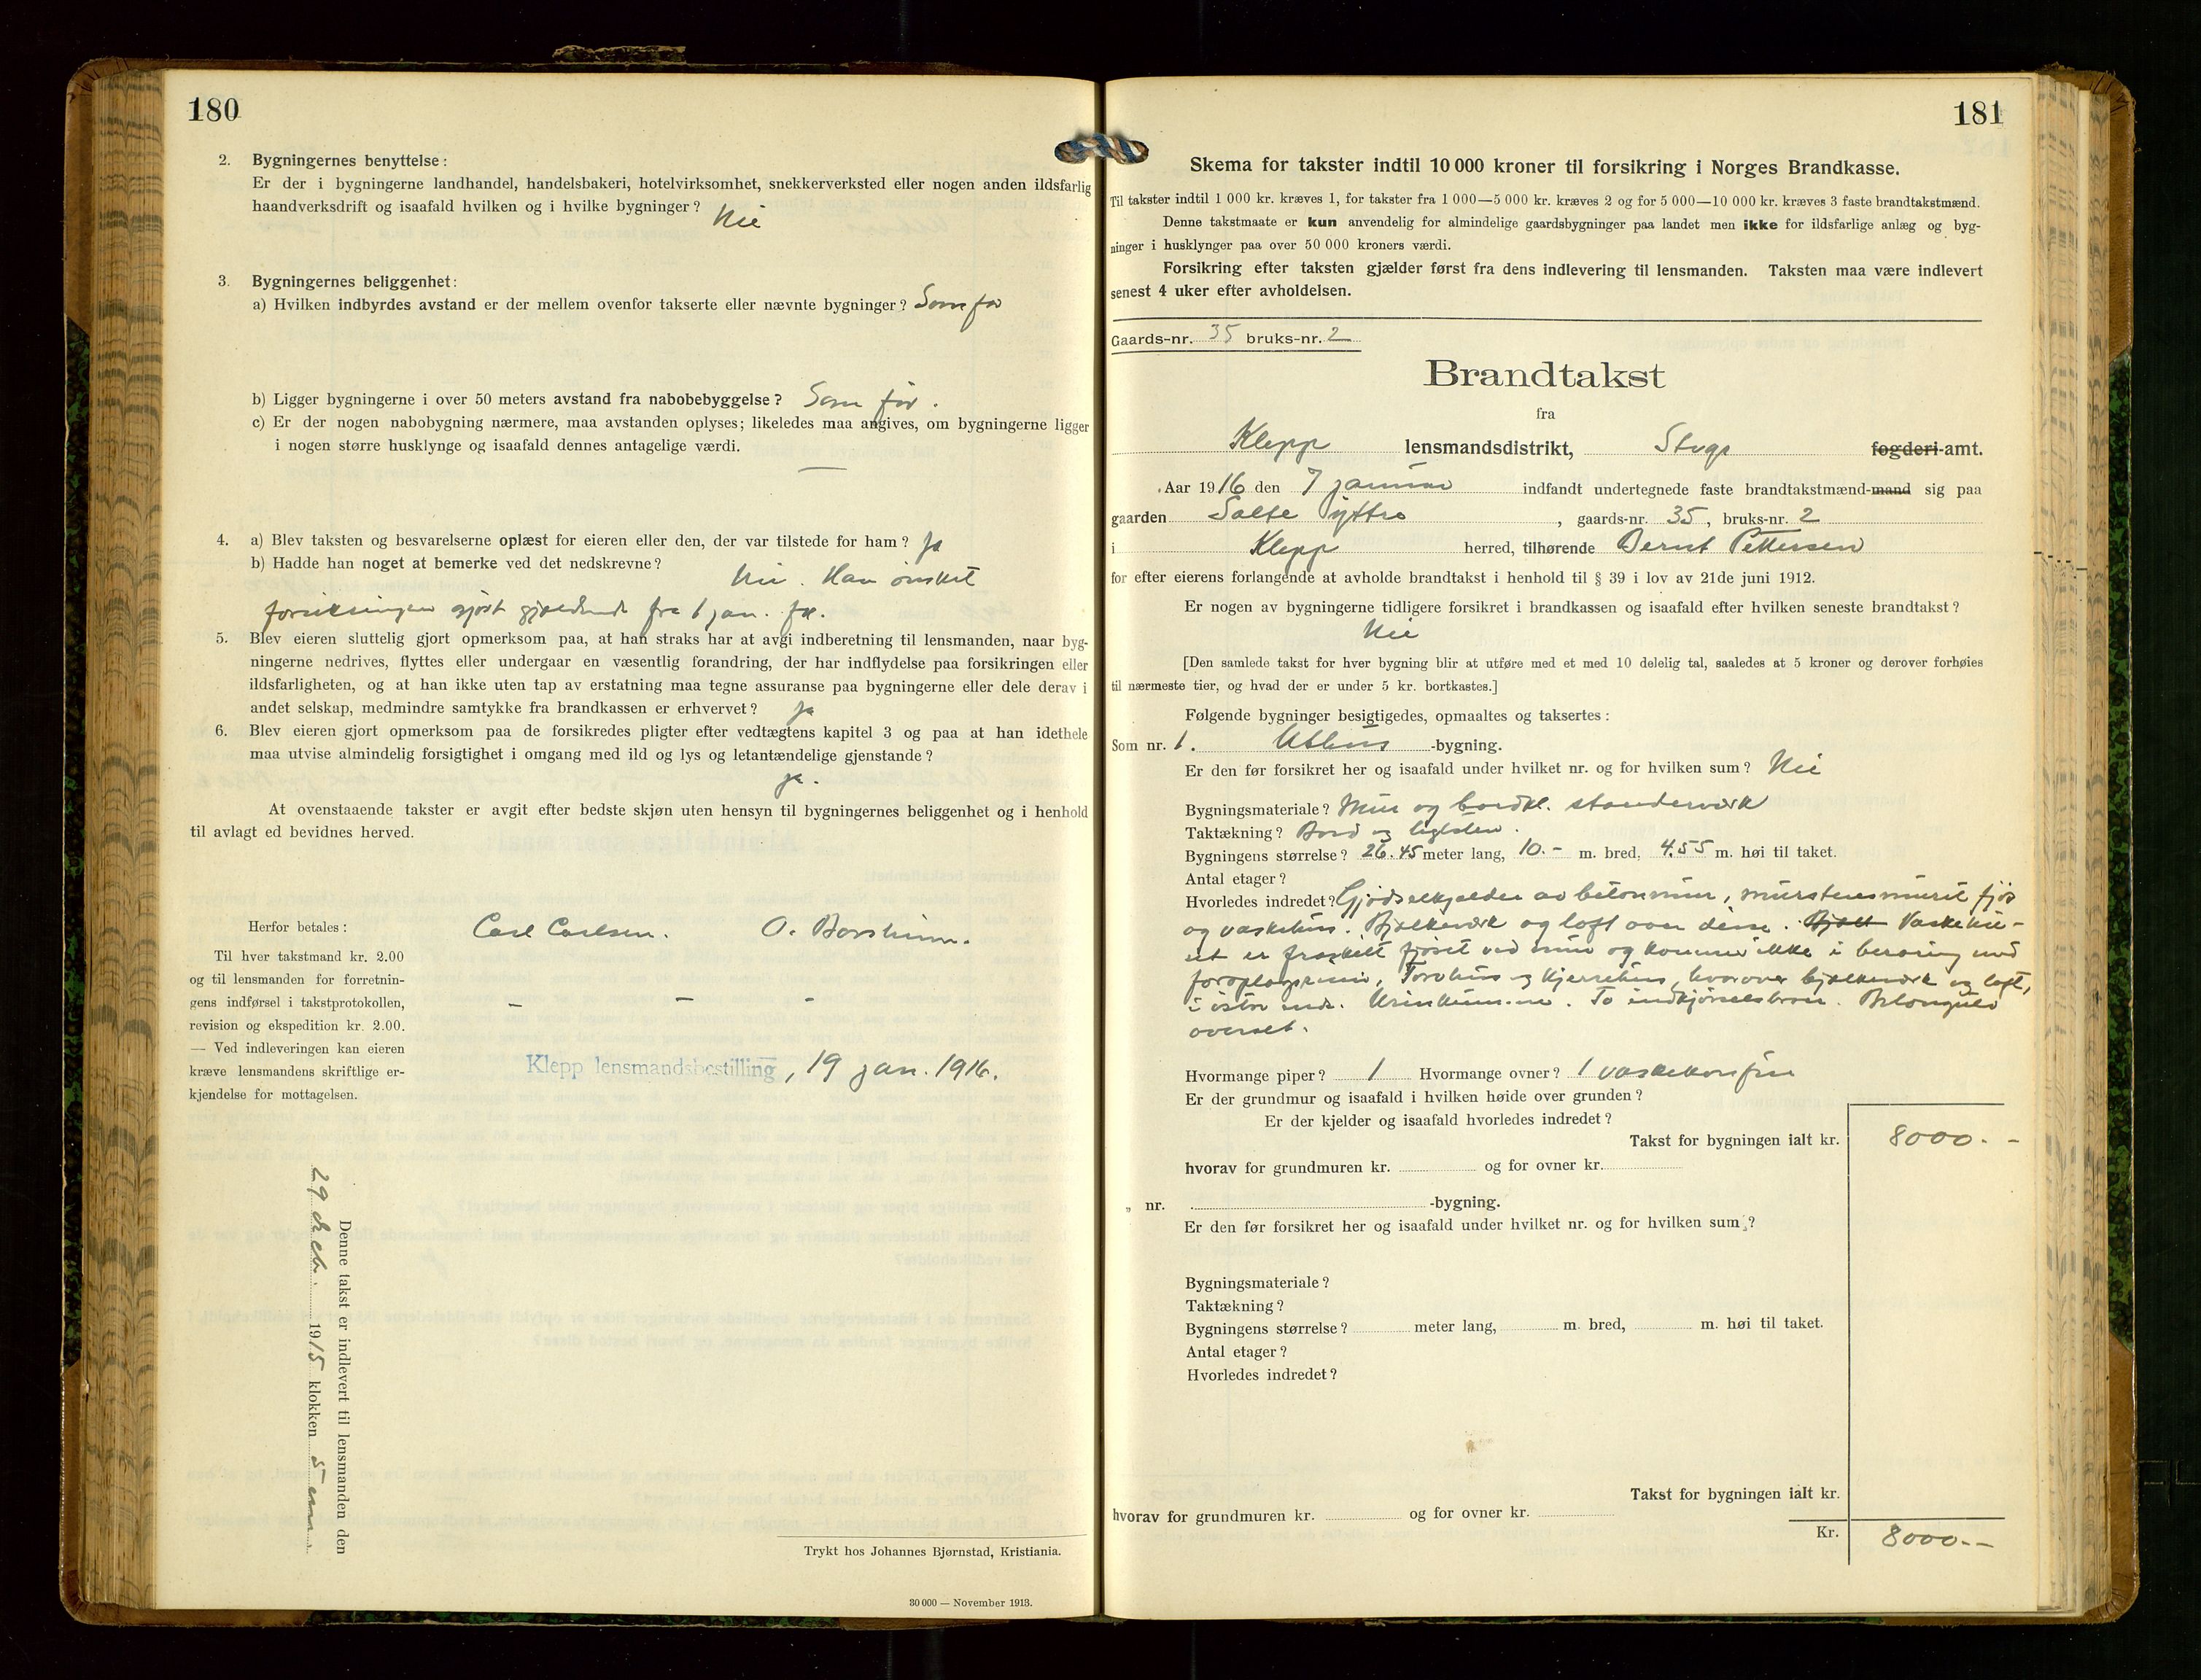 180
2. Bygningernes benyttelse:
Er der i bygningerne landhandel, handelsbakeri, hotelvirksomhet, snekkerverksted eller nogen anden ildsfarlig
haandverksdrift og isaafald hvilken og i hvilke bygninger? Nei
3. Bygningernes beliggenhet:
a) Hvilken indbyrdes avstand er der mellem ovenfor takserte eller nævnte bygninger? Som før
b) Ligger bygningerne i over 50 meters avstand fra nabobebyggelse? Som før.
c) Er der nogen nabobygning nærmere, maa avstanden oplyses; likeledes maa angives, om bygningerne ligger
i nogen større husklynge og isaafald dennes antagelige værdi. —
4. a) Blev taksten og besvarelserne oplæst for eieren eller den, der var tilstede for ham? Ja
b) Hadde han noget at bemerke ved det nedskrevne? Nei. Han ønsket
forsikringen gjort gjældende fra 1 jan.
5. Blev eieren sluttelig gjort opmerksom paa, at han straks har at avgi indberetning til lensmanden, naar byg-
ningerne nedrives, flyttes eller undergaar en væsentlig forandring, der har indflydelse paa forsikringen eller
ildsfarligheten, og at han ikke uten tap av erstatning maa tegne assuranse paa bygningerne eller dele derav i
andet selskap, medmindre samtykke fra brandkassen er erhvervet? Ja
6. Blev eieren gjort opmerksom paa de forsikredes pligter efter vedtægtens kapitel 3 og paa at han idethele
maa utvise almindelig forsigtighet i omgang med ild og lys og letantændelige gjenstande?
ja.
At ovenstaaende takster er avgit efter bedste skjøn uten hensyn til bygningernes beliggenhet og i henhold
til avlagt ed bevidnes herved.
Herfor betales:
Til hver takstmand kr. 2.00
og til lensmanden for forretnin-
gens indførsel i takstprotokollen,
revision og ekspedition kr. 2.00.
— Ved indleveringen kan eieren
kræve lensmandens skriftlige er-
kjendelse for mottagelsen.
Carl Carlsen. O. Borsheim.
— — —
Klepp lensmandsbestilling, 19 jan. 1916.
Denne takst er indlevert til lensmanden den
29 decb. 1915 klokken 5 em.
Trykt hos Johannes Bjørnstad, Kristiania.
30 000 — November 1913.
181
Skema for takster indtil 10 000 kroner til forsikring i Norges Brandkasse.
Til takster indtil 1 000 kr. kræves 1, for takster fra 1 000—5 000 kr. kræves 2 og for 5 000—10 000 kr. kræves 3 faste brandtakstmænd.
Denne takstmaate er kun anvendelig for almindelige gaardsbygninger paa landet men ikke for ildsfarlige anlæg og byg-
ninger i husklynger paa over 50 000 kroners værdi.
Forsikring efter taksten gjælder først fra dens indlevering til lensmanden. Taksten maa være indlevert
senest 4 uker efter avholdelsen.
Gaards-nr. 35 bruks-nr. 2
Brandtakst
fra
Klepp lensmandsdistrikt, Stvgr fogderi-amt.
Aar 1916 den 7 januar indfandt undertegnede faste brandtakstmænd-mand sig paa
gaarden Salte yttre, gaards-nr. 35, bruks-nr. 2
i Klepp herred, tilhørende Bernt Pettersen
for efter eierens forlangende at avholde brandtakst i henhold til § 39 i lov av 21de juni 1912.
Er nogen av bygningerne tidligere forsikret i brandkassen og isaafald efter hvilken seneste brandtakst?
Nei
[Den samlede takst for hver bygning blir at utføre med et med 10 delelig tal, saaledes at 5 kroner og derover forhøies
til nærmeste tier, og hvad der er under 5 kr. bortkastes.]
Følgende bygninger besigtigedes, opmaaltes og taksertes:
Som nr. 1. Uthus -bygning.
Er den før forsikret her og isaafald under hvilket nr. og for hvilken sum? Nei
Bygningsmateriale? Mur og bordkl. standerværk
Taktækning? Bord og teglsten.
Bygningens størrelse? 26.45 meter lang, 10.- m. bred, 4.55 m. høi til taket.
Antal etager?
Hvorledes indredet? Gjødselkjelder av betonmur, murstensmuret fjøs
og vaskehus. Bjelkeverk og loft over disse. Bjælk Vaskehu-
set er fraskilt fjøset ved mur og kommer ikke i berøring med
foroplagsrum, Torvhus og kjerrehus, hvorover bjelkeverk og loft,
i østre ende. Urinkumme. To indkjørselsbroer. Betongulv
overalt.
Hvormange piper? 1 Hvormange ovner? 1 vaskekomfur
Er der grundmur og isaafald i hvilken høide over grunden?
Er der kjelder og isaafald hvorledes indredet?
Takst for bygningen ialt kr. 8000.-
hvorav for grundmuren kr. og for ovner kr.
„ nr. -bygning.
Er den før forsikret her og isaafald under hvilket nr. og for hvilken sum?
Bygningsmateriale?
Taktækning?
Bygningens størrelse? meter lang, m. bred, m. høi til taket.
Antal etager?
Hvorledes indredet?
Takst for bygningen ialt kr.
hvorav for grundmuren kr. og for ovner kr.
Kr. 8000.-